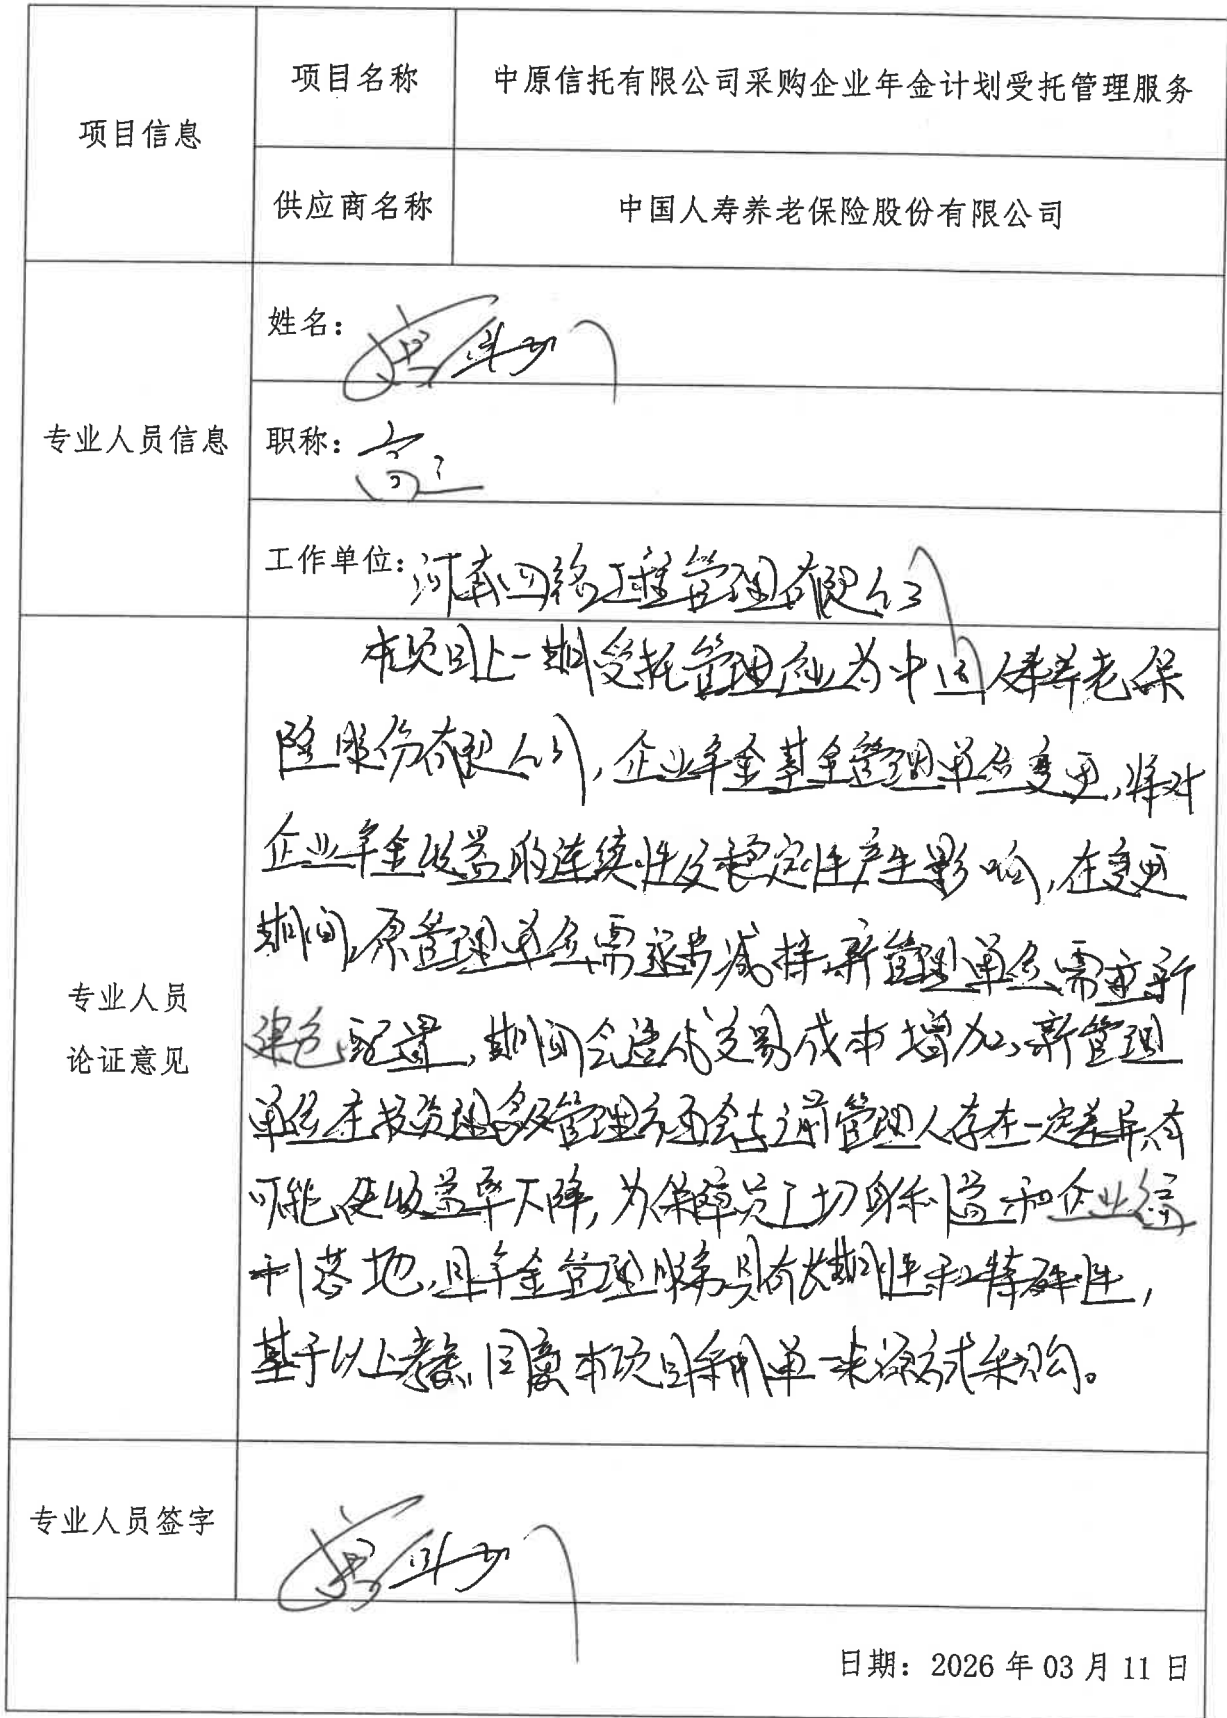 项目信息
项目名称
中原信托有限公司采购企业年金计划受托管理服务
供应商名称
中国人寿养老保险股份有限公司
专业人员信息
姓名：
职称：高工
工作单位：河南 工程管理有限公司
专业人员
论证意见
本项目上一期受托管理企业为中国人寿养老保
险股份有限公司，企业年金基金管理单位变更，将对
企业年金收益的连续性及稳定性产生影响，在变更
期间，原管理单位需逐步减持，新管理单位需重新
建仓配置，期间会造成交易成本增加，新管理
单位在投资理念及管理方面会与前管理人存在一定差异，有
可能使收益率下降，为保障员工切身利益和企业福
利落地，且年金管理服务具有长期性和特殊性，
基于以上考虑，同意本项目采用单一来源方式采购。
专业人员签字
日期：2026年03月11日